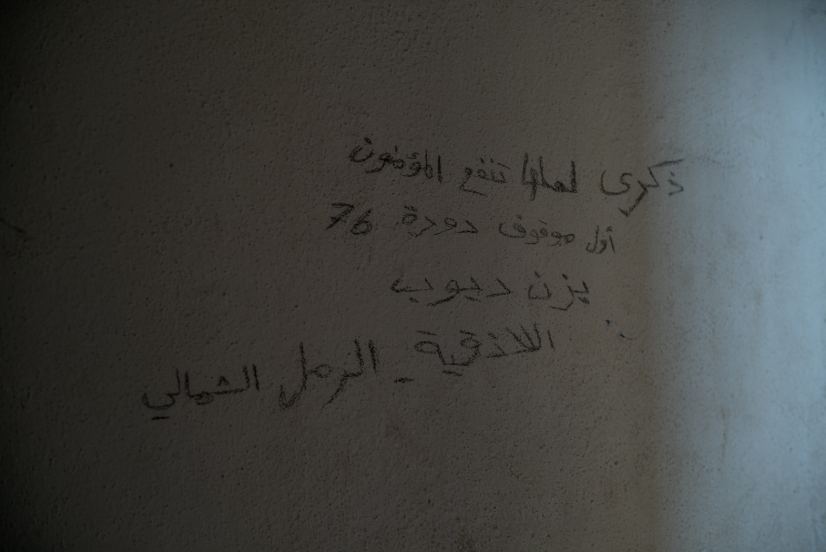 ذكرى لعلها تنفع المؤمنون
أول موقوف دورة 76
يزن ديوب
اللاذقية - الرمل الشمالي